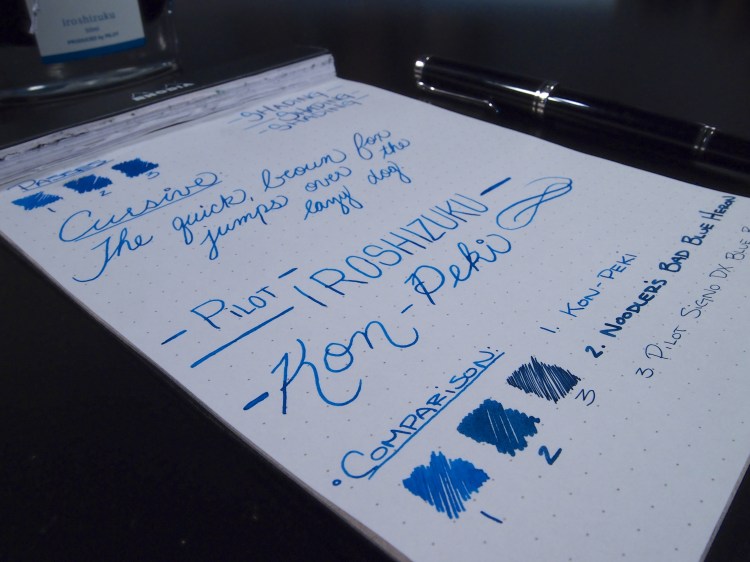 iroshizuku
50ml
PRODUCED by PILOT
RHODIA
SHADING
SHADING
SHADING
PASSES:
1 2 3
Cursive:
The quick, brown fox
jumps over the
lazy dog
- PILOT -
IROSHIZUKU -
- Kon-Peki
• COMPARISON:
1 2 3
1. KON-PEKI
2. NOODLER'S BAD BLUE HERON
3. PILOT SIGNO DX BLUE B